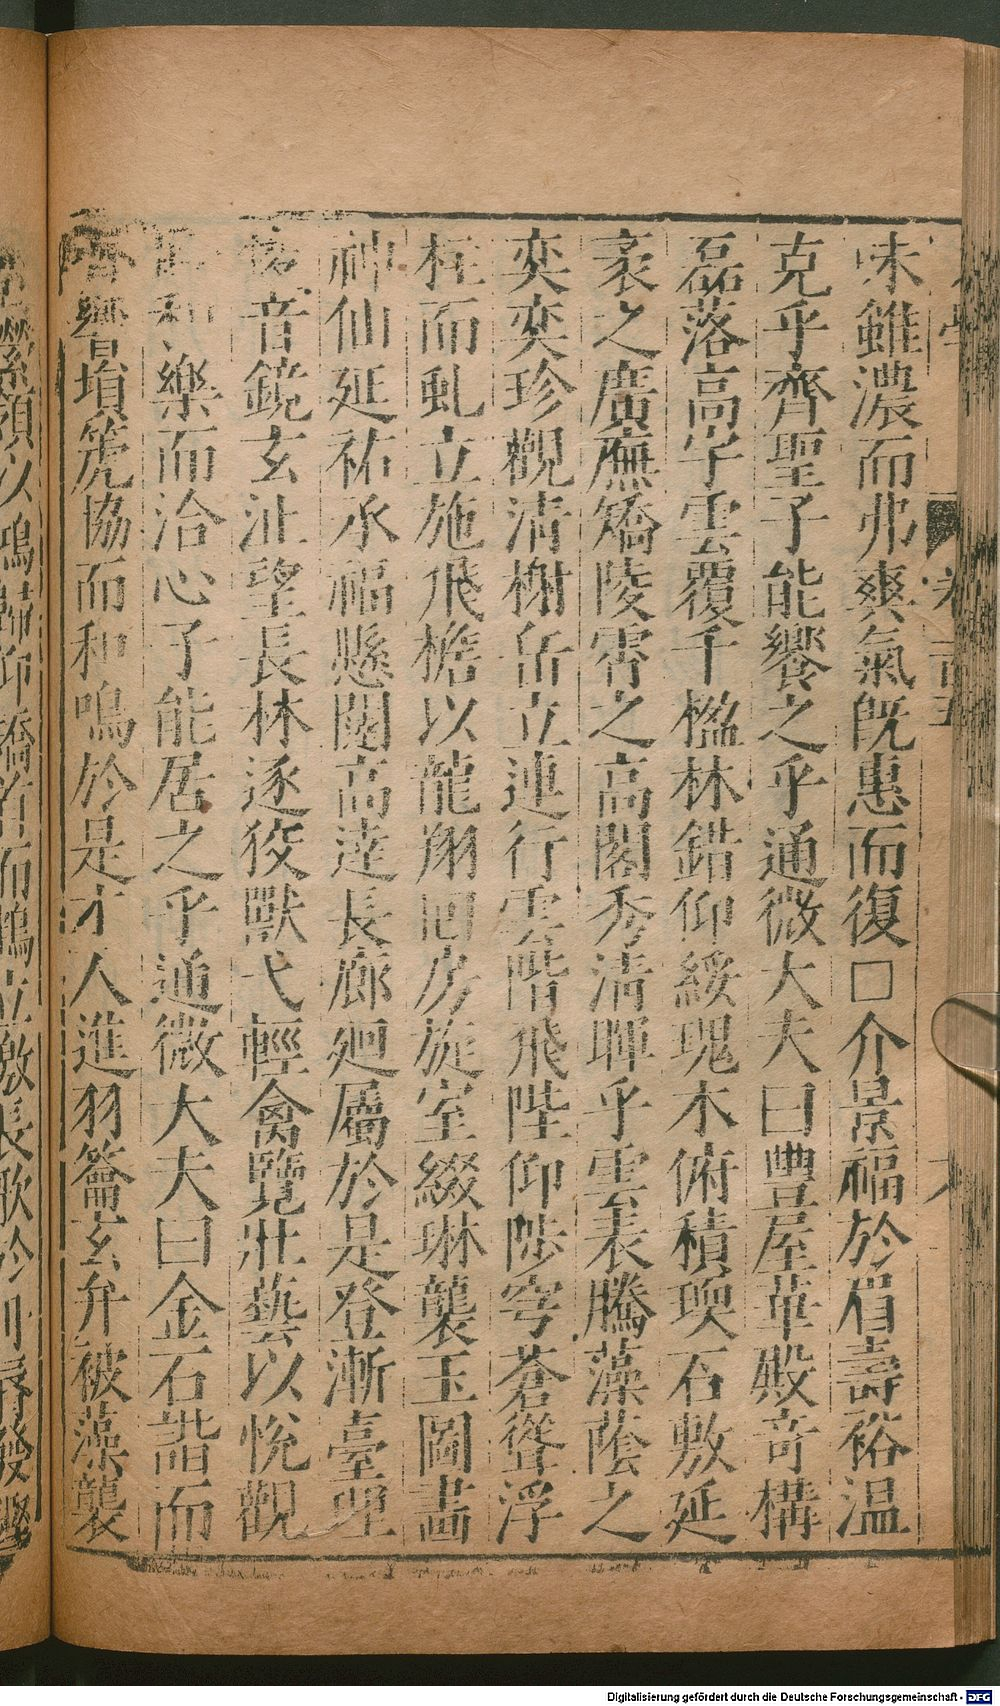 味雖濃而弗爽氣旣惠而復□介景福於眉壽裕溫
克乎齊聖子能饗之乎通微大夫曰豐屋華殿奇構
磊落高宇雲覆千楹林錯仰綏瑰木俯積琅石敷延
袤之廣廡矯陵霄之高閣秀清暉乎雲表騰藻蔭之
奕奕珍觀清榭岳立連行雲階飛陛仰陟穹蒼聳浮
柱而虬立施飛檐以龍翔回房旋室綴琳襲玉圖畫
神仙延祐承福懸闥高達長廊廻屬於是登漸臺理
音鏡玄沚望長林逐狡獸弋輕禽覽壯藝以悅觀
和樂而洽心子能居之乎通微大夫曰金石諧而
響塤箎協而和鳴於是才人進羽籥玄弁被藻襲